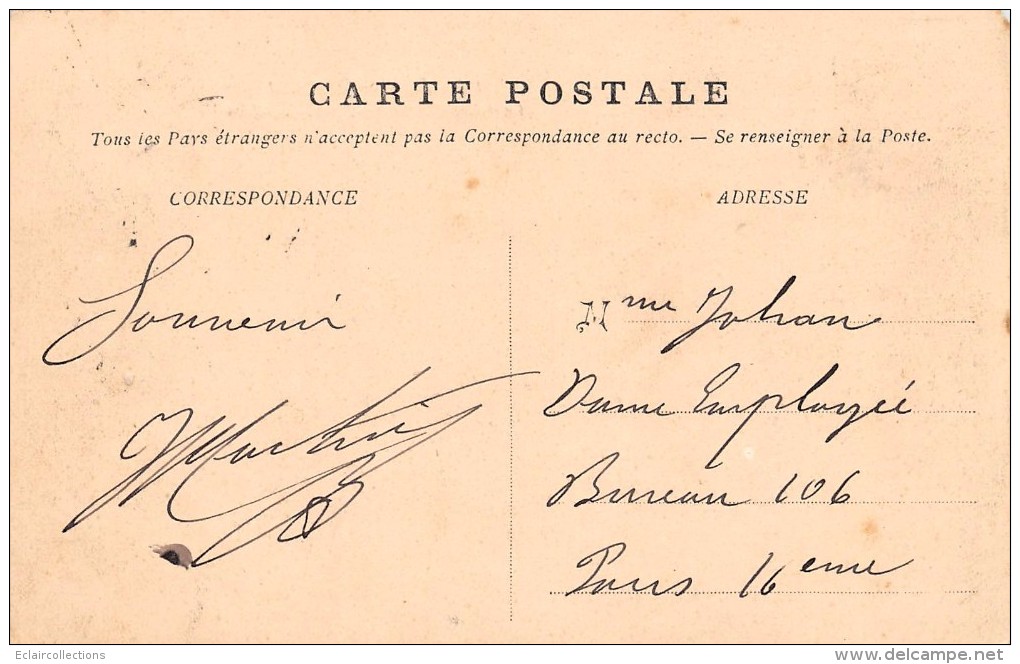 CARTE POSTALE
Tous les Pays étrangers n'acceptent pas la Correspondance au recto. — Se renseigner à la Poste.
CORRESPONDANCE
Souvenir
ADRESSE
Mme Johan
Dame Employée
Bureau 106
Paris 16eme
Eclaircollections
delcampe.net